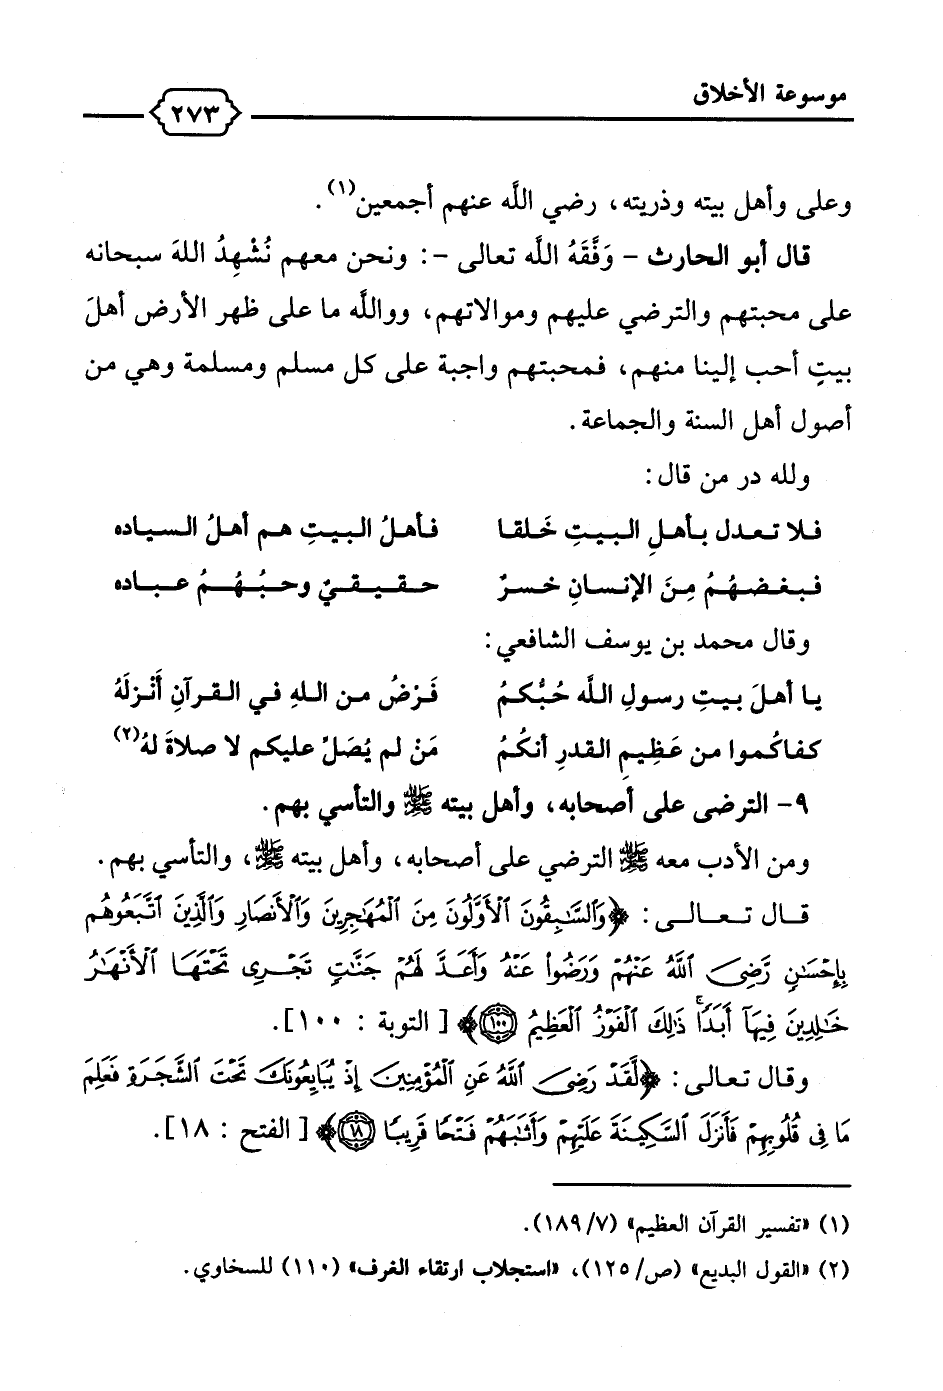 موسوعة الأخلاق
٢٧٣
وعلى وأهل بيته وذريته، رضي اللَّه عنهم أجمعين(١).
قال أبو الحارث - وَفَّقَهُ اللَّه تعالى -: ونحن معهم نُشْهِدُ اللهَ سبحانه
على محبتهم والترضي عليهم وموالاتهم، وواللَّه ما على ظهر الأرض أهلَ
بيتٍ أحب إلينا منهم، فمحبتهم واجبة على كل مسلم ومسلمة وهي من
أصول أهل السنة والجماعة.
ولله در من قال:
فلا تعدل بأهلِ البيتِ خَلقا فأهلُ البيتِ هم أهلُ السياده
فبغضهُمُ مِنَ الإنسانِ خسرٌ حقيقيٌ وحبُهُمُ عباده
وقال محمد بن يوسف الشافعي:
يا أهلَ بيتِ رسولِ اللَّه حُبُّكمُ فَرْضُ من اللهِ في القرآنِ أَنْزلَهُ
كفاكُموا من عَظِيمِ القدرِ أنكُمُ مَنْ لم يُصَلِّ عليكم لا صلاةَ لهُ(٢)
٩- الترضى على أصحابه، وأهل بيته ﷺ والتأسي بهم.
ومن الأدب معه ﷺ الترضي على أصحابه، وأهل بيته ﷺ، والتأسي بهم.
قال تعالى: ﴿وَٱلسَّـٰبِقُونَ ٱلْأَوَّلُونَ مِنَ ٱلْمُهَـٰجِرِينَ وَٱلْأَنصَارِ وَٱلَّذِينَ ٱتَّبَعُوهُم
بِإِحْسَـٰنٍ رَّضِىَ ٱللَّهُ عَنْهُمْ وَرَضُوا۟ عَنْهُ وَأَعَدَّ لَهُمْ جَنَّـٰتٍ تَجْرِى تَحْتَهَا ٱلْأَنْهَـٰرُ
خَـٰلِدِينَ فِيهَآ أَبَدًا ۚ ذَٰلِكَ ٱلْفَوْزُ ٱلْعَظِيمُ ١٠٠﴾ [التوبة : ١٠٠].
وقال تعالى: ﴿لَّقَدْ رَضِىَ ٱللَّهُ عَنِ ٱلْمُؤْمِنِينَ إِذْ يُبَايِعُونَكَ تَحْتَ ٱلشَّجَرَةِ فَعَلِمَ
مَا فِى قُلُوبِهِمْ فَأَنزَلَ ٱلسَّكِينَةَ عَلَيْهِمْ وَأَثَـٰبَهُمْ فَتْحًا قَرِيبًا ١٨﴾ [الفتح : ١٨].
(١) «تفسير القرآن العظيم» (١٨٩/٧).
(٢) «القول البديع» (ص/١٢٥)، «استجلاب ارتقاء الغرف» (١١٠) للسخاوي.